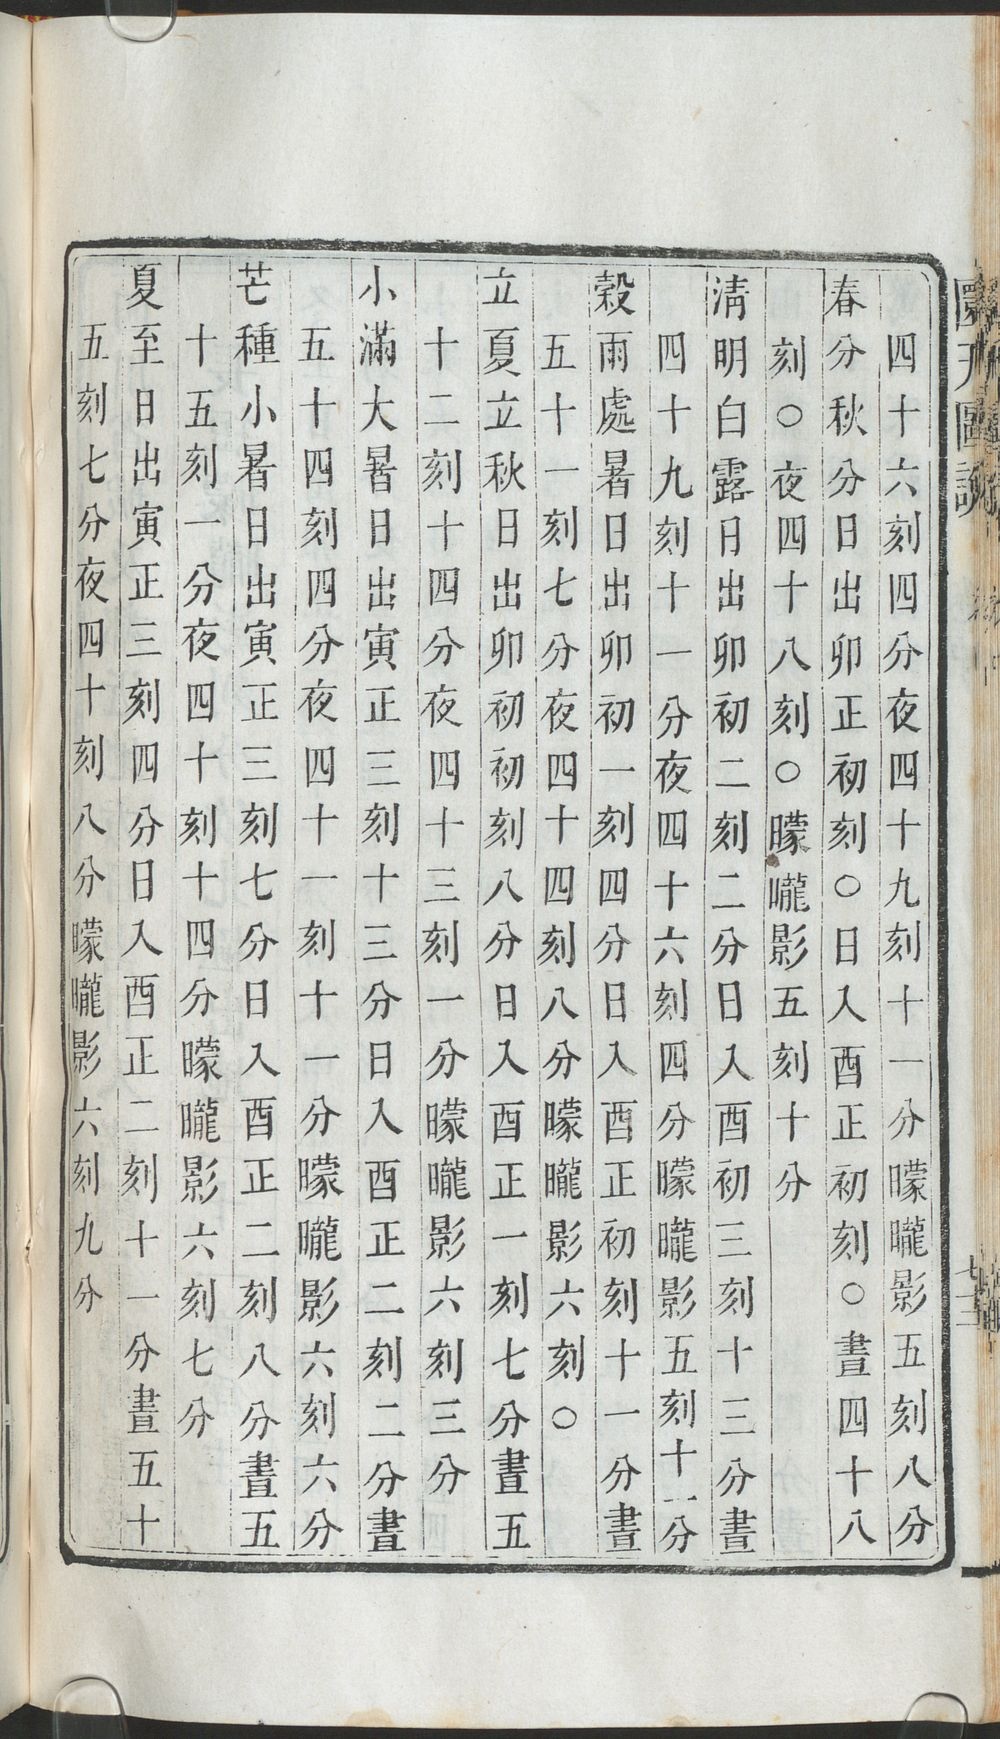 圜天圖說
四十六刻四分夜四十九刻十一分曚曨影五刻八分
春分秋分日出卯正初刻〇日入酉正初刻〇晝四十八
刻〇夜四十八刻〇曚曨影五刻十分
淸明白露日出卯初二刻二分日入酉初三刻十三分晝
四十九刻十一分夜四十六刻四分曚曨影五刻十一分
穀雨處暑日出卯初一刻四分日入酉正初刻十一分晝
五十一刻七分夜四十四刻八分曚曨影六刻〇
立夏立秋日出卯初初刻八分日入酉正一刻七分晝五
十二刻十四分夜四十三刻一分曚曨影六刻三分
小滿大暑日出寅正三刻十三分日入酉正二刻二分晝
五十四刻四分夜四十一刻十一分曚曨影六刻六分
芒種小暑日出寅正三刻七分日入酉正二刻八分晝五
十五刻一分夜四十刻十四分曚曨影六刻七分
夏至日出寅正三刻四分日入酉正二刻十一分晝五十
五刻七分夜四十刻八分曚曨影六刻九分